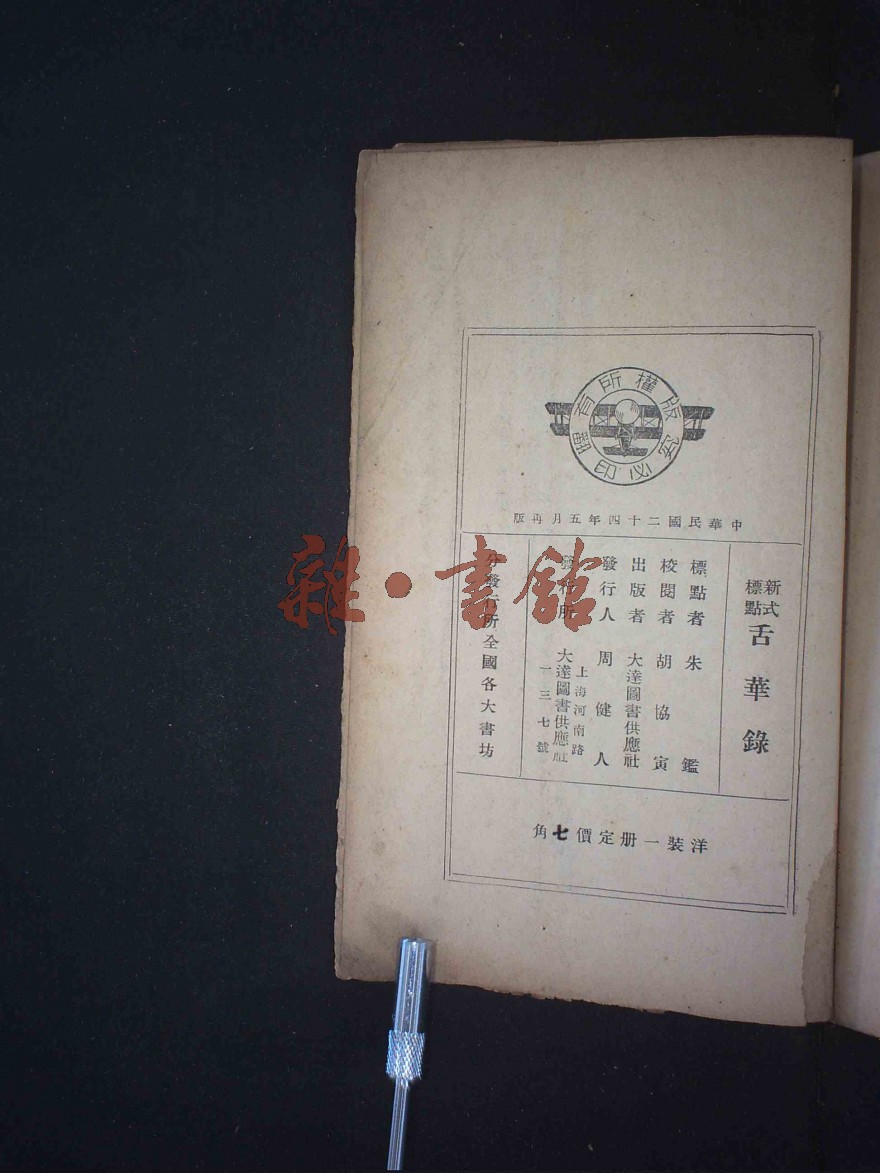 版權所有翻印必究
中華民國二十四年五月再版
新式標點 舌華錄
標點者 朱鑑
校閱者 胡協寅
出版者 大達圖書供應社
發行人 周健人
發行所 上海河南路一三七號 大達圖書供應社
分發行所全國各大書坊
洋裝一册定價七角
雜·書館